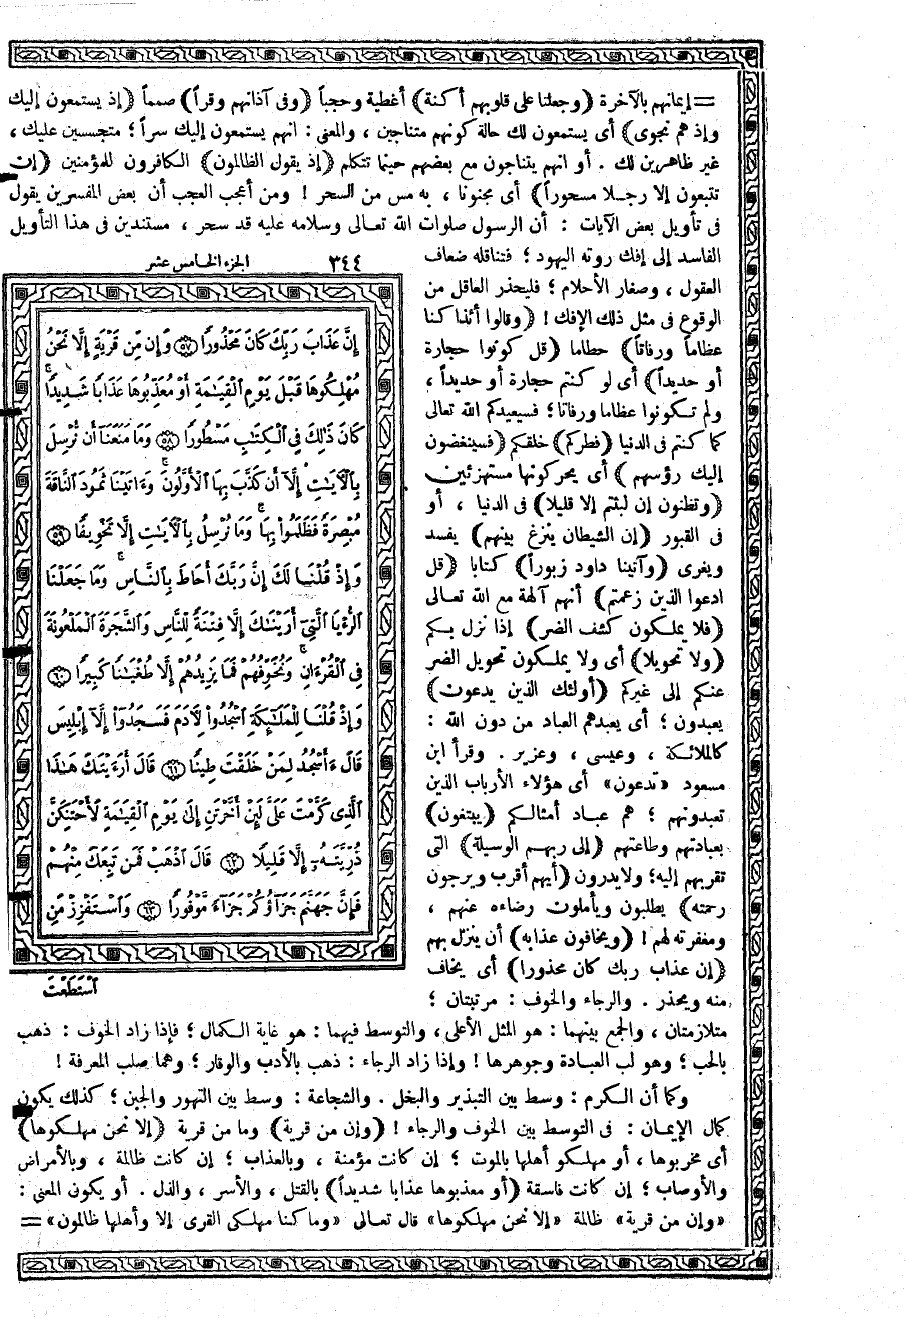 = إيمانهم بالآخرة (وجعلنا على قلوبهم أكنة) أغطية وحجباً (وفى آذانهم وقراً) صمماً (إذ يستمعون إليك
وإذ هم نجوى) أى يستمعون لك حالة كونهم متناجين ، والمعنى : انهم يستمعون إليك سراً ؛ متجسسين عليك ،
غير ظاهرين لك . أو انهم يتناجون مع بعضهم حينما تتكلم (إذ يقول الظالمون) الكافرون للمؤمنين (إن
تتبعون إلا رجلا مسحوراً) أى مجنونا ، به مس من السحر ! ومن أعجب العجب أن بعض المفسرين يقول
فى تأويل بعض الآيات : أن الرسول صلوات الله تعالى وسلامه عليه قد سحر ، مستندين فى هذا التأويل
الفاسد إلى إفك روته اليهود ؛ فتناقله ضعاف
العقول ، وصغار الأحلام ؛ فليحذر العاقل من
الوقوع فى مثل ذلك الإفك ! (وقالوا أئذا كنا
عظاماً ورفاتاً) حطاما (قل كونوا حجارة
أو حديداً) أى لو كنتم حجارة أو حديداً ،
ولم تكونوا عظاما ورفاتا ؛ فسيعيدكم الله تعالى
كما كنتم فى الدنيا (فطركم) خلقكم (فسينغضون
إليك رؤسهم) أى يحركونها مستهزئين
(وتظنون إن لبثتم إلا قليلا) فى الدنيا ، أو
فى القبور (إن الشيطان ينزغ بينهم) يفسد
ويغرى (وآتينا داود زبوراً) كتابا (قل
ادعوا الذين زعمتم) أنهم آلهة مع الله تعالى
(فلا يملكون كشف الضر) إذا نزل بكم
(ولا تحويلا) أى ولا يملكون تحويل الضر
عنكم إلى غيركم (أولئك الذين يدعون)
يعبدون ؛ أى يعبدهم العباد من دون الله :
كالملائكة ، وعيسى ، وعزير . وقرأ ابن
مسعود «تدعون» أى هؤلاء الأرباب الذين
تعبدونهم ؛ هم عباد أمثالكم (يبتغون)
بعبادتهم وطاعتهم (إلى ربهم الوسيلة) التى
تقربهم إليه ؛ ولا يدرون (أيهم أقرب ويرجون
رحمته) يطلبون ويأملون رضاءه عنهم ،
ومغفرته لهم ! (ويخافون عذابه) أن ينزل بهم
(إن عذاب ربك كان محذورا) أى يخاف
منه ويحذر . والرجاء والخوف : مرتبتان ؛
متلازمتان ، والجمع بينهما : هو المثل الأعلى ، والتوسط فيهما : هو غاية الكمال ؛ فإذا زاد الخوف : ذهب
بالحب ؛ وهو لب العبادة وجوهرها ! وإذا زاد الرجاء : ذهب بالأدب والوقار ؛ وهما صلب المعرفة !
وكما أن الكرم : وسط بين التبذير والبخل . والشجاعة : وسط بين التهور والجبن ؛ كذلك يكون
كمال الإيمان : فى التوسط بين الخوف والرجاء ! (وإن من قرية) وما من قرية (إلا نحن مهلكوها)
أى مخربوها ، أو مهلكو أهلها بالموت ؛ إن كانت مؤمنة ، وبالعذاب ؛ إن كانت ظالمة ، وبالأمراض
والأوصاب ؛ إن كانت فاسقة (أو معذبوها عذابا شديداً) بالقتل ، والأسر ، والذل . أو يكون المعنى :
«وإن من قرية» ظالمة «إلا نحن مهلكوها» قال تعالى «وما كنا مهلكى القرى إلا وأهلها ظالمون» =
٣٤٤ الجزء الخامس عشر
إِنَّ عَذَابَ رَبِّكَ كَانَ مَحْذُورًا ﴿٥٧﴾ وَإِن مِّن قَرْيَةٍ إِلَّا نَحْنُ
مُهْلِكُوهَا قَبْلَ يَوْمِ ٱلْقِيَٰمَةِ أَوْ مُعَذِّبُوهَا عَذَابًا شَدِيدًا
كَانَ ذَٰلِكَ فِي ٱلْكِتَٰبِ مَسْطُورًا ﴿٥٨﴾ وَمَا مَنَعَنَآ أَن نُّرْسِلَ
بِٱلْأٓيَٰتِ إِلَّآ أَن كَذَّبَ بِهَا ٱلْأَوَّلُونَ ۚ وَءَاتَيْنَا ثَمُودَ ٱلنَّاقَةَ
مُبْصِرَةً فَظَلَمُوا۟ بِهَا ۚ وَمَا نُرْسِلُ بِٱلْأٓيَٰتِ إِلَّا تَخْوِيفًا ﴿٥٩﴾
وَإِذْ قُلْنَا لَكَ إِنَّ رَبَّكَ أَحَاطَ بِٱلنَّاسِ ۚ وَمَا جَعَلْنَا
ٱلرُّءْيَا ٱلَّتِيٓ أَرَيْنَٰكَ إِلَّا فِتْنَةً لِّلنَّاسِ وَٱلشَّجَرَةَ ٱلْمَلْعُونَةَ
فِي ٱلْقُرْءَانِ ۚ وَنُخَوِّفُهُمْ فَمَا يَزِيدُهُمْ إِلَّا طُغْيَٰنًا كَبِيرًا ﴿٦٠﴾
وَإِذْ قُلْنَا لِلْمَلَٰٓئِكَةِ ٱسْجُدُوا۟ لِأٓدَمَ فَسَجَدُوٓا۟ إِلَّآ إِبْلِيسَ
قَالَ ءَأَسْجُدُ لِمَنْ خَلَقْتَ طِينًا ﴿٦١﴾ قَالَ أَرَءَيْتَكَ هَٰذَا
ٱلَّذِي كَرَّمْتَ عَلَيَّ لَئِنْ أَخَّرْتَنِ إِلَىٰ يَوْمِ ٱلْقِيَٰمَةِ لَأَحْتَنِكَنَّ
ذُرِّيَّتَهُۥٓ إِلَّا قَلِيلًا ﴿٦٢﴾ قَالَ ٱذْهَبْ فَمَن تَبِعَكَ مِنْهُمْ
فَإِنَّ جَهَنَّمَ جَزَآؤُكُمْ جَزَآءً مَّوْفُورًا ﴿٦٣﴾ وَٱسْتَفْزِزْ مَنِ
ٱسْتَطَعْتَ